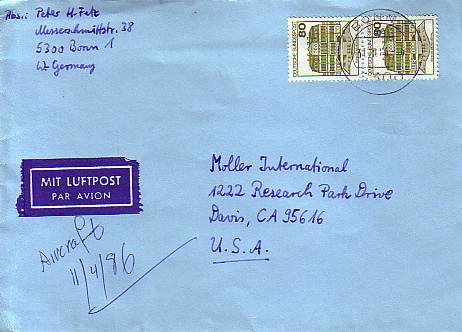 Abs.: Peter H. Fetz
Messerschmittstr. 38
5300 Bonn 1
W. Germany
80
80
MIT LUFTPOST
PAR AVION
Moller International
1222 Research Park Drive
Davis, CA 95616
U.S.A.
Aircraft
11/4/86